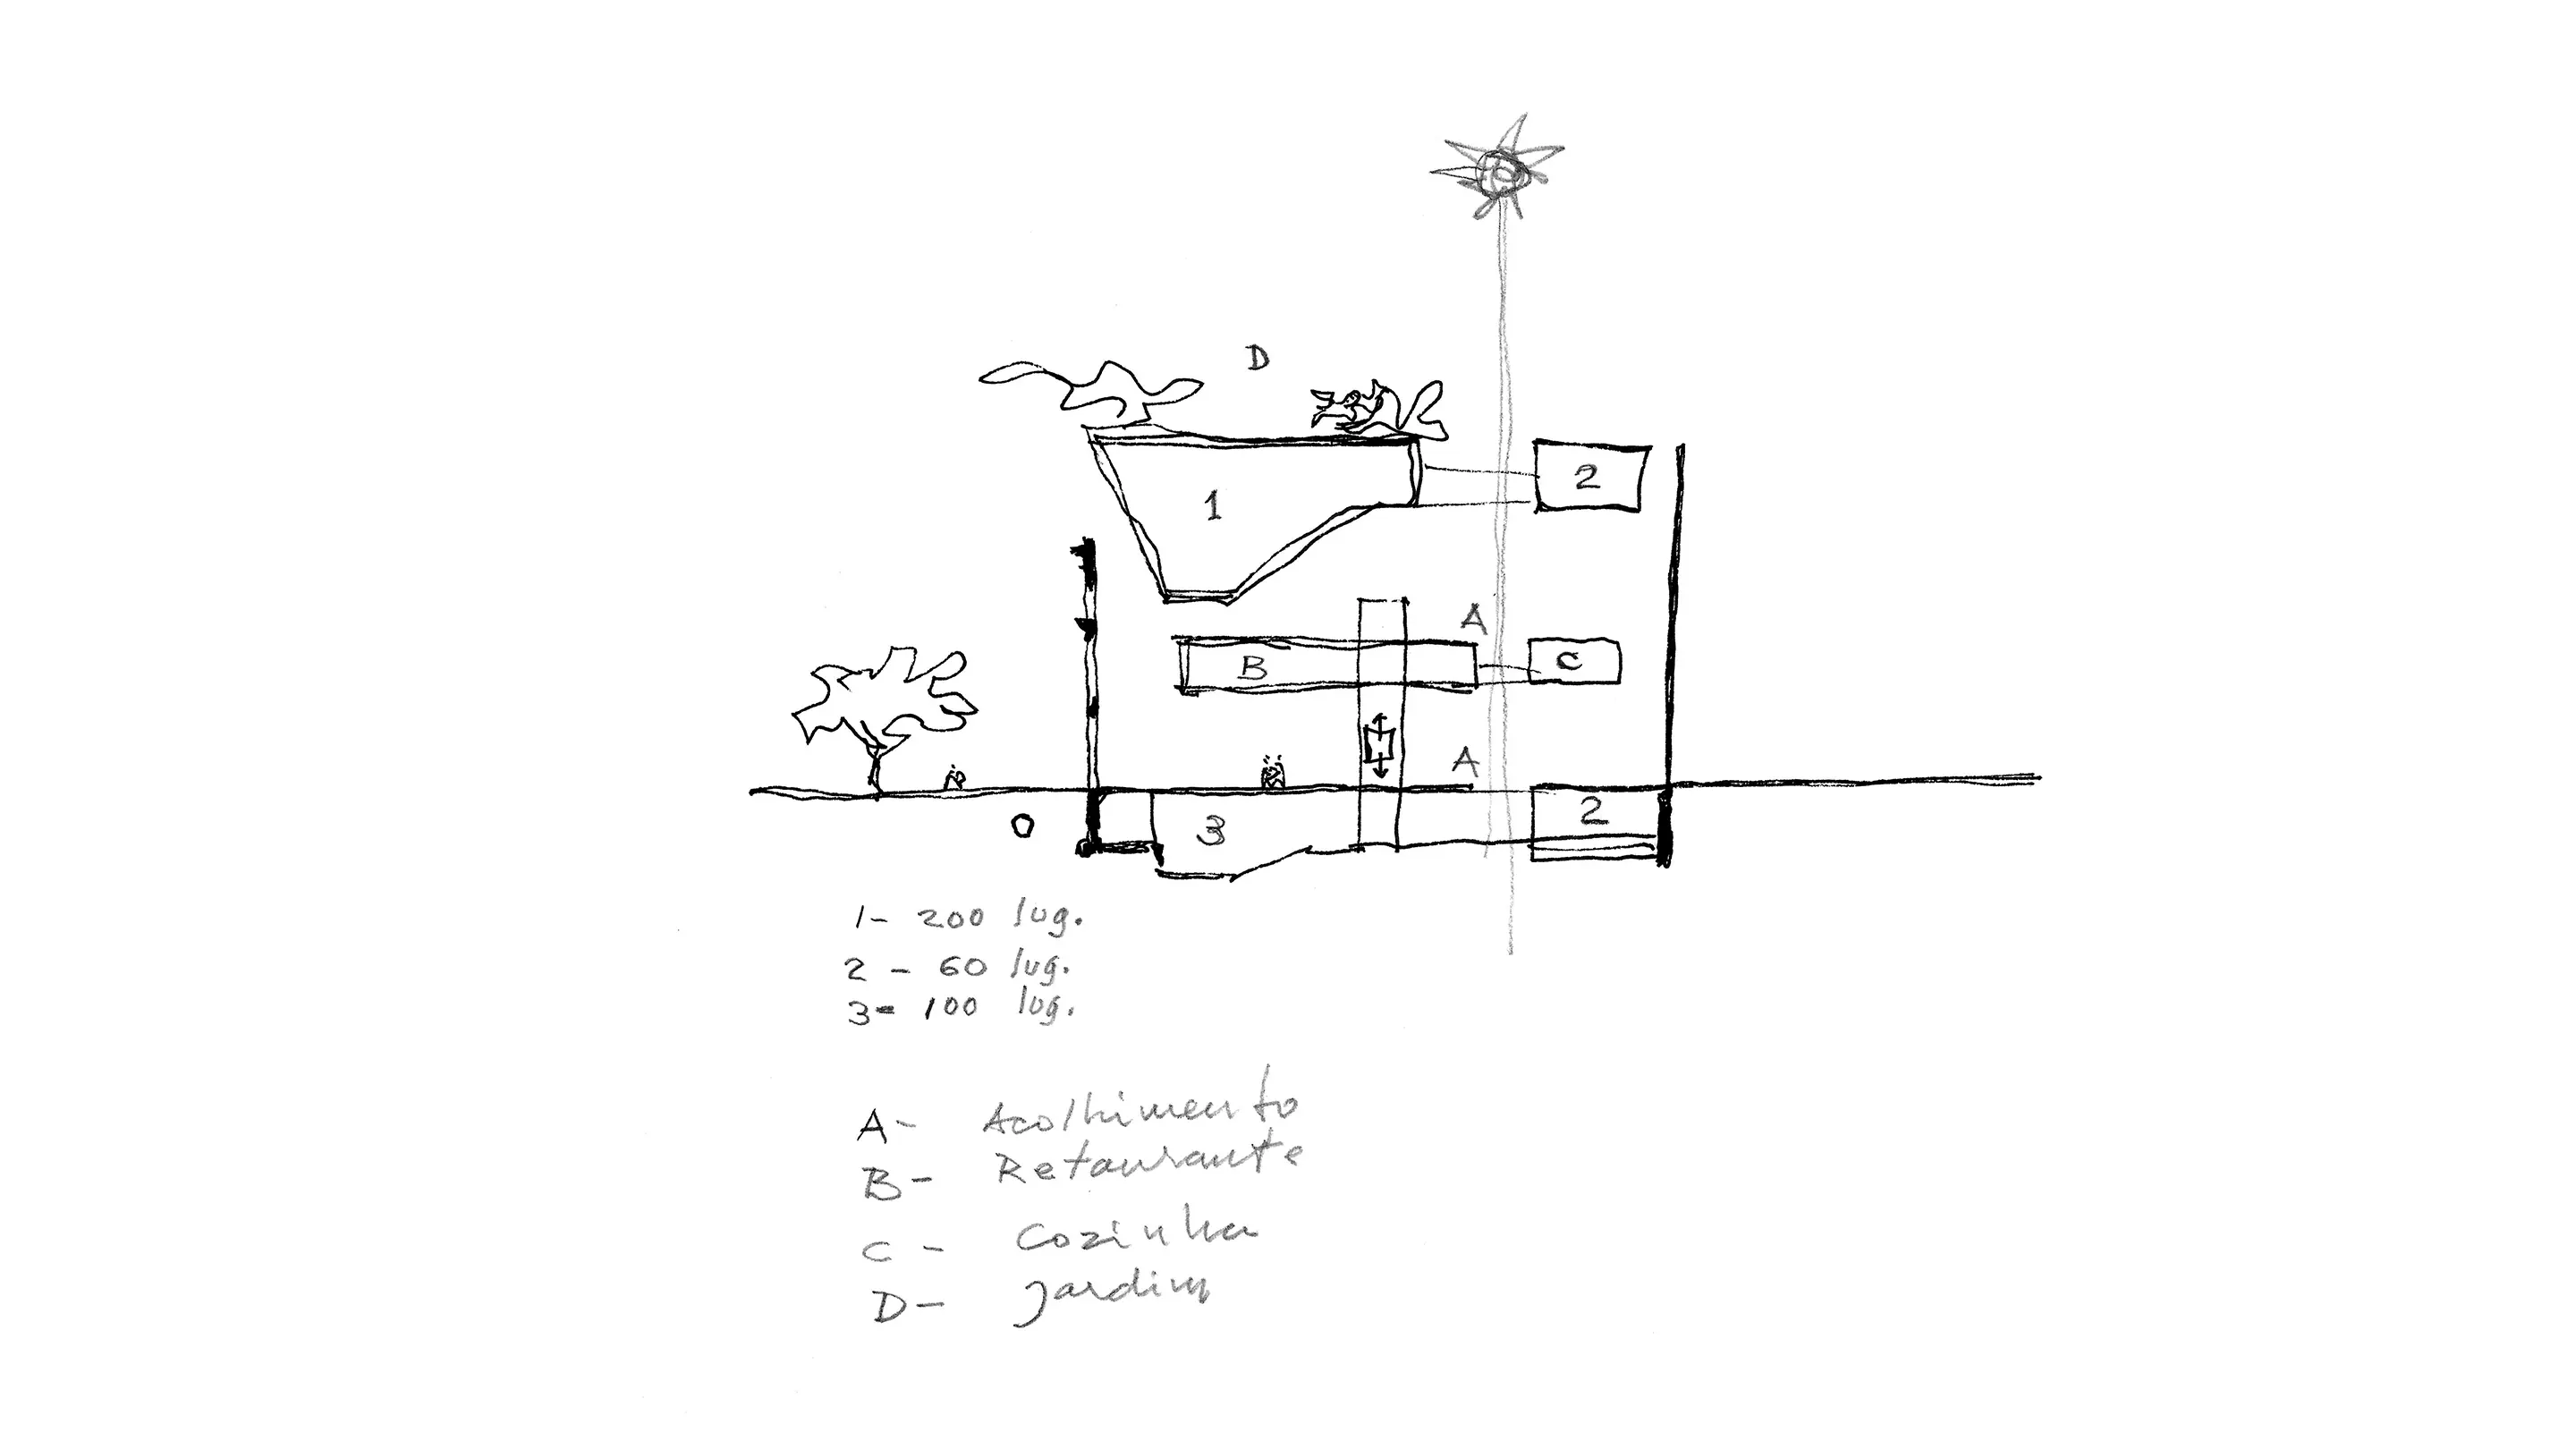 D
1
2
A
B
C
A
3
2
1- 200 lug.
2 - 60 lug.
3- 100 lug.
A- Acolhimento
B- Retaurante
C - Cozinha
D- Jardim